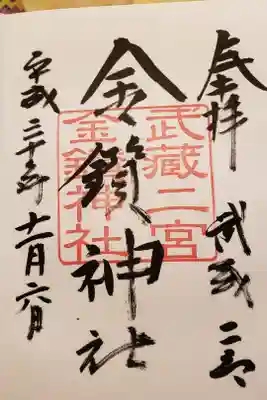 奉拝　武蔵二宮
金鑚神社
平成三十年十一月六日
武蔵二宮
金鑚神社